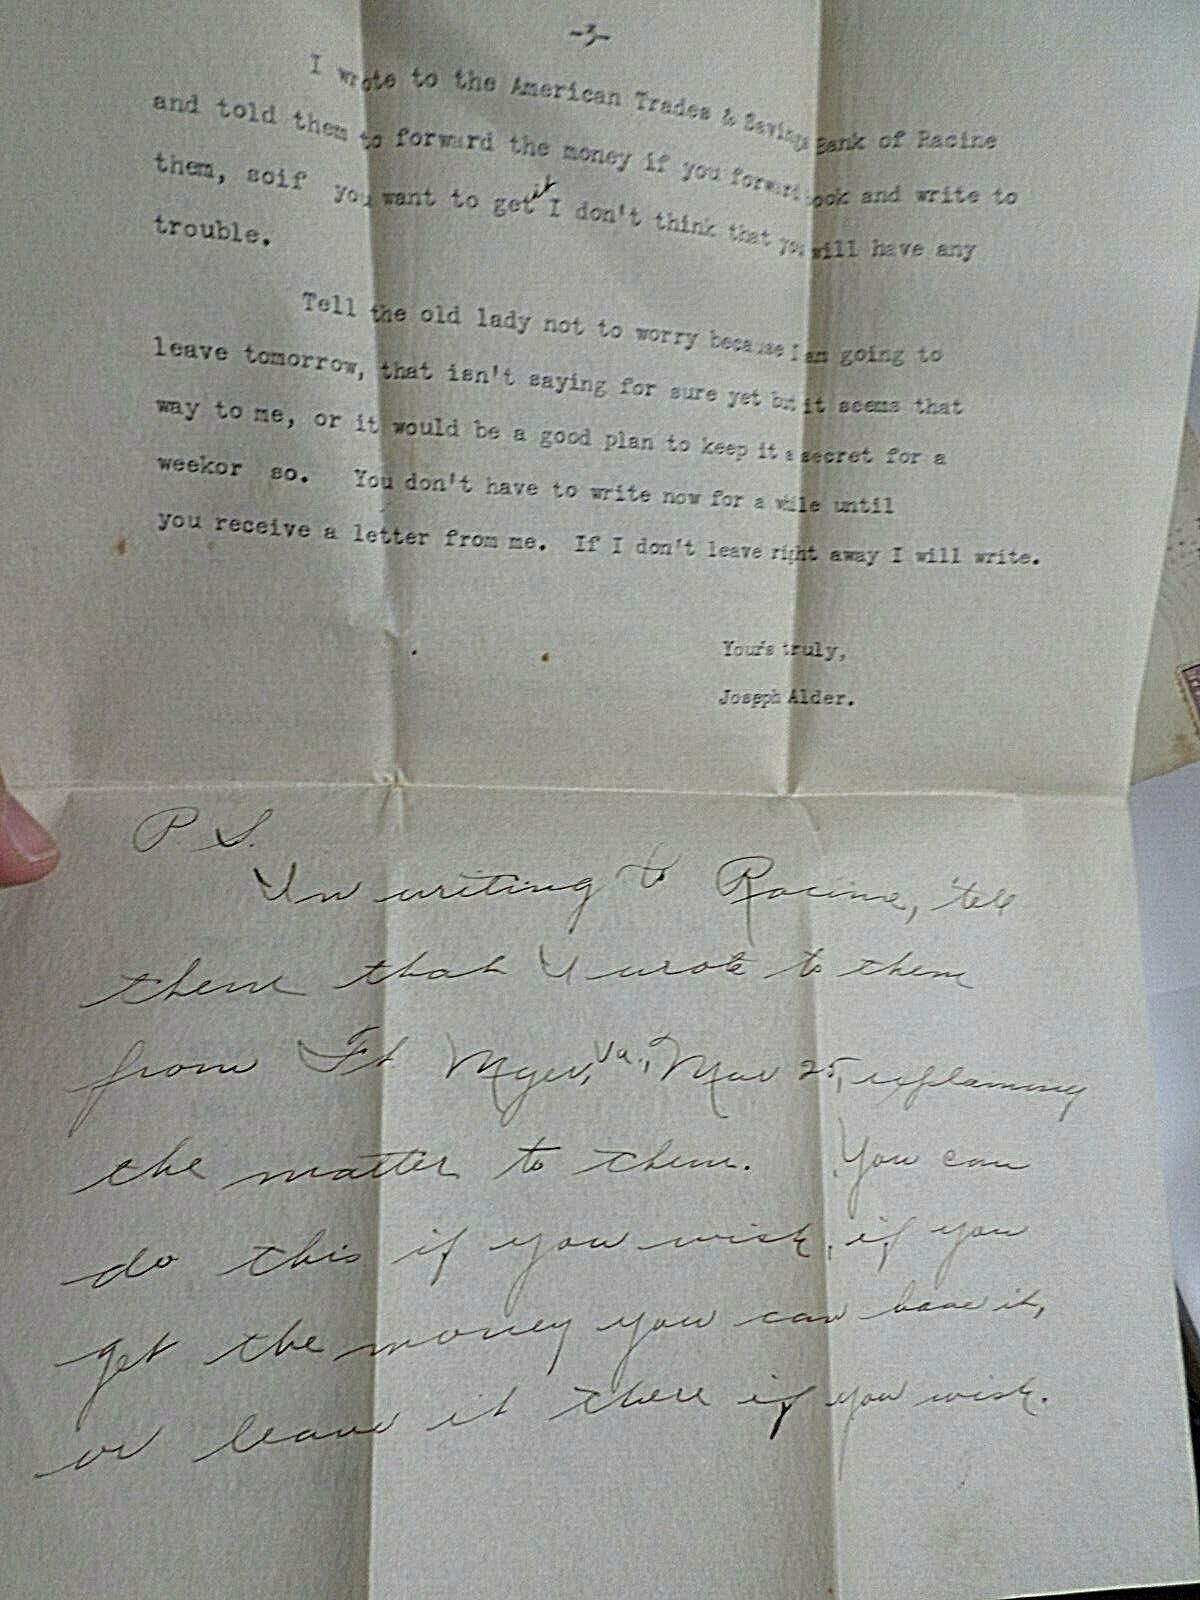 -3-
I wrote to the American Trades & Savings Bank of Racine
and told them to forward the money if you forward book and write to
them, soif you want to get it I don't think that you will have any
trouble.
Tell the old lady not to worry because I am going to
leave tomorrow, that isn't saying for sure yet but it seems that
way to me, or it would be a good plan to keep it a secret for a
weekor so. You don't have to write now for a while until
you receive a letter from me. If I don't leave right away I will write.
Your's truly,
Joseph Alder.
P S.
In writing to Racine, tell
them that I wrote to them
from Ft Myer, Va., Mar 25, explaining
the matter to them. You can
do this if you wish, if you
get the money you can have it,
or leave it there if you wish.